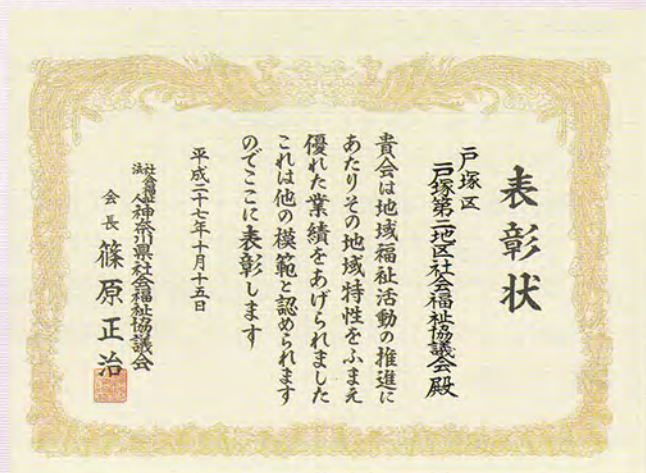 表彰状
戸塚区
戸塚第二地区社会福祉協議会殿
貴会は地域福祉活動の推進に
あたりその地域特性をふまえ
優れた業績をあげられました
これは他の模範と認められます
のでここに表彰します
平成二十七年十月十五日
社会福祉法人神奈川県社会福祉協議会
会長 篠原正治